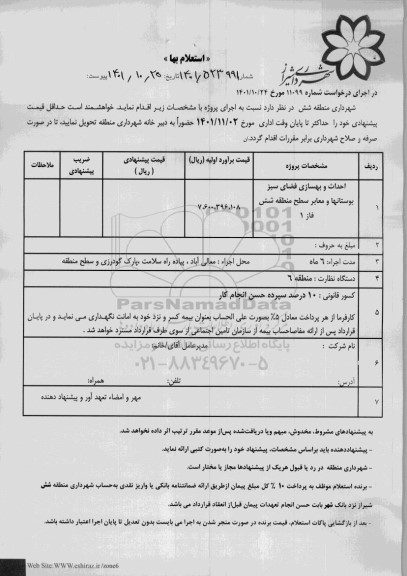 « استعلام بها »
شهرداری شیراز
شماره: ۱۴۰۱/۵۲۳۹۹۱ تاریخ: ۱۴۰۱/۱۰/۲۵ پیوست:
در اجرای درخواست شماره ۱۱۰۹۹ مورخ ۱۴۰۱/۱۰/۲۴
شهرداری منطقه شش در نظر دارد نسبت به اجرای پروژه با مشخصات زیر اقدام نماید. خواهشمند است حداقل قیمت
پیشنهادی خود را حداکثر تا پایان وقت اداری مورخ ۱۴۰۱/۱۱/۰۲ حضوراً به دبیر خانه شهرداری منطقه تحویل نمایید، تا در صورت
صرفه و صلاح شهرداری برابر مقررات اقدام گردد.
ردیف مشخصات پروژه قیمت برآورد اولیه (ریال) قیمت پیشنهادی ( ریال ) ضریب پیشنهادی ملاحظات
۱ احداث و بهسازی فضای سبز
بوستانها و معابر سطح منطقه شش
فاز ۱
۷،۶۰۰،۳۹۶،۱۰۸
۲ مبلغ به حروف :
۳ مدت اجراء: ۶ ماه محل اجراء : معالی آباد ، پیاده راه سلامت ،پارک گودرزی و سطح منطقه
۴ دستگاه نظارت : منطقه ۶
۵ کسور قانونی : ۱۰ درصد سپرده حسن انجام کار
کارفرما از هر پرداخت معادل ۵٪ بصورت علی الحساب بعنوان بیمه کسر و نزد خود به امانت نگهداری می نماید و در پایان
قرارداد پس از ارائه مفاصاحساب بیمه از سازمان تامین اجتماعی از سوی طرف قرارداد مسترد خواهد شد .
۶ نام شرکت : مدیرعامل آقای/خانم:
آدرس: تلفن: همراه:
۷ مهر و امضاء تعهد آور و پیشنهاد دهنده
ParsNamadData
۰۲۱-۸۸۳۴۹۶۷۰-۵
به پیشنهادهای مشروط، مخدوش، مبهم ویا دریافت‌شده پس‌از موعد مقرر ترتیب اثر داده نخواهد شد.
- پیشنهاددهنده باید براساس مشخصات، پیشنهاد خود را به‌صورت کتبی ارائه نماید.
- شهرداری منطقه در رد یا قبول هریک از پیشنهادها مجاز یا مختار است.
- برنده استعلام موظف به پرداخت ۱۰ ٪ کل مبلغ پیمان ازطریق ارائه ضمانتنامه بانکی یا واریز نقدی به‌حساب شهرداری منطقه شش
شیراز نزد بانک شهر بابت حسن انجام تعهدات پیمان قبل‌از انعقاد قرارداد می باشد.
- بعد از بازگشایی پاکات استعلام، قیمت برنده در صورت منجر شدن به اجرا می بایست بدون تعدیل تا پایان اجرا اعتبار داشته باشد.
Web Site:WWW.eshiraz.ir/zone6